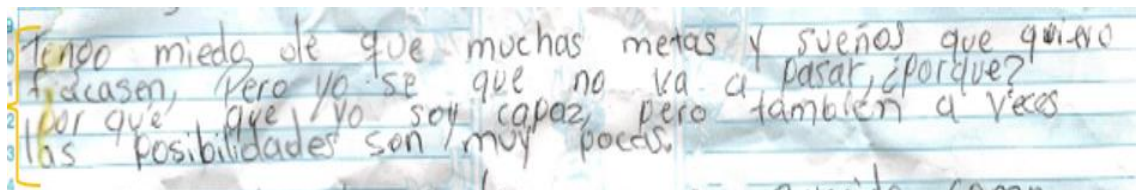 Tengo miedo de que muchas metas y sueños que quiero
fracasen, Pero yo se que no va a pasar, ¿porque?
por que yo soy capaz, pero también a veces
las posibilidades son muy pocas.